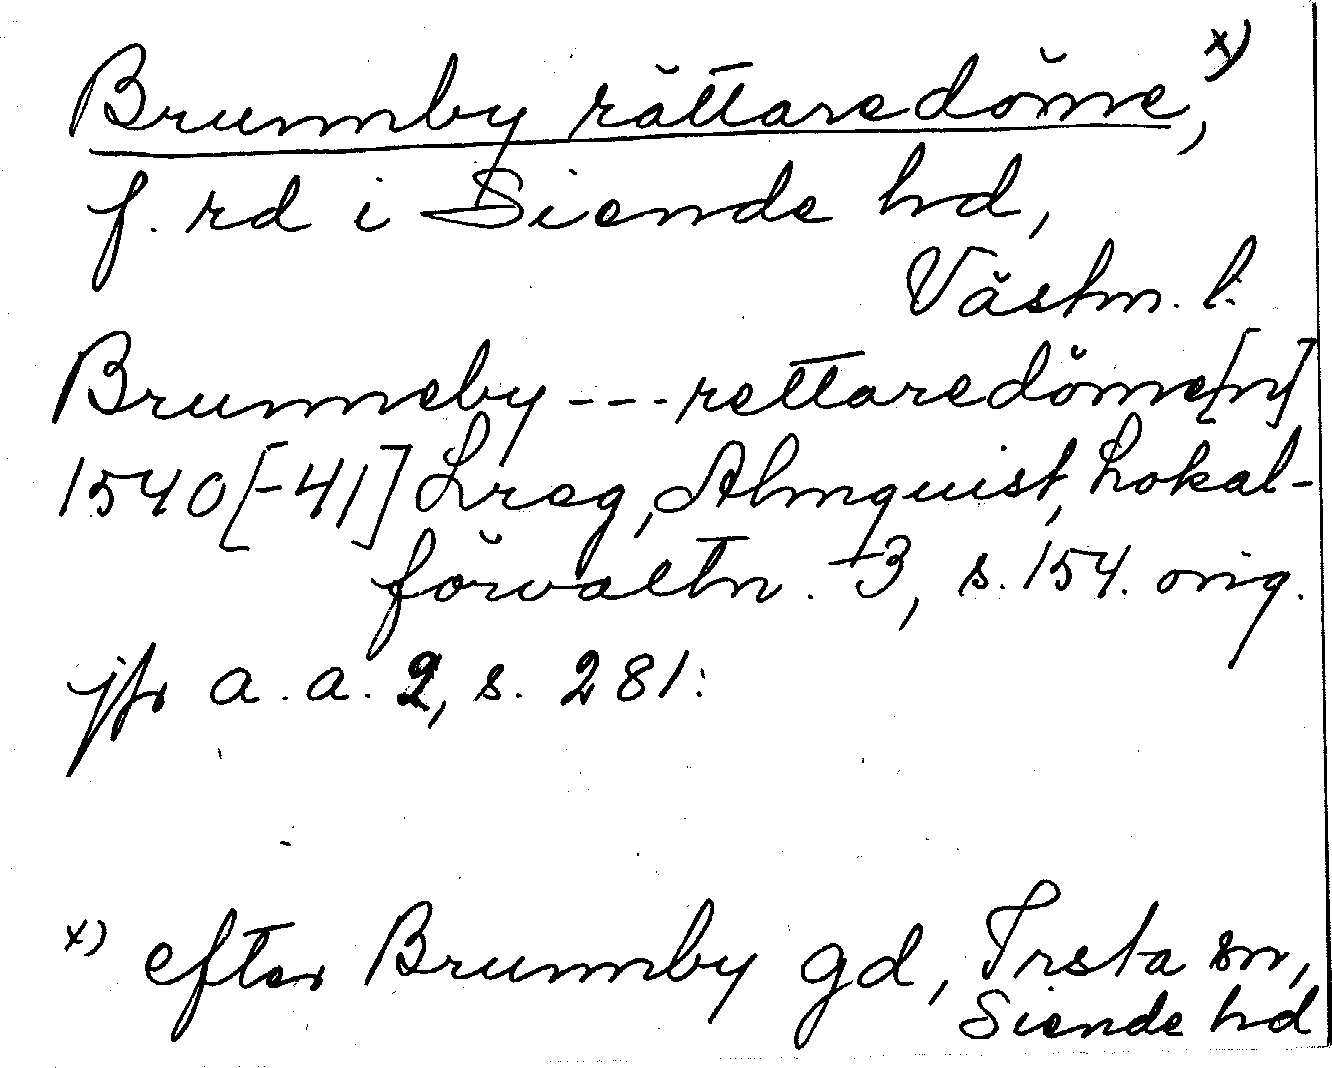 Brunnby rättaredöme, x)
f. rd i Siende hd,
Västm. l.
Brunneby --- rettaredöme[n]
1540[-41] Lreg, Almquist, Lokal-
förvaltn. 3, s. 154. orig.
jfr a. a. 2, s. 281.
x) efter Brunnby gd, Irsta sn,
Siende hd